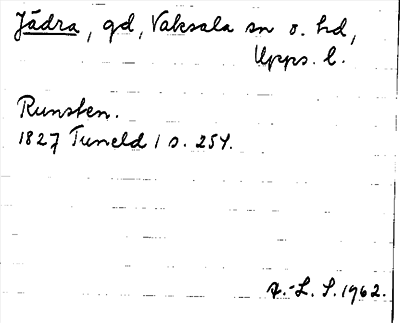 Jädra, gd, Vaksala sn o. hd,
Upps. l.
Runsten.
1827 Tuneld 1 s. 254.
L. S. 1962.